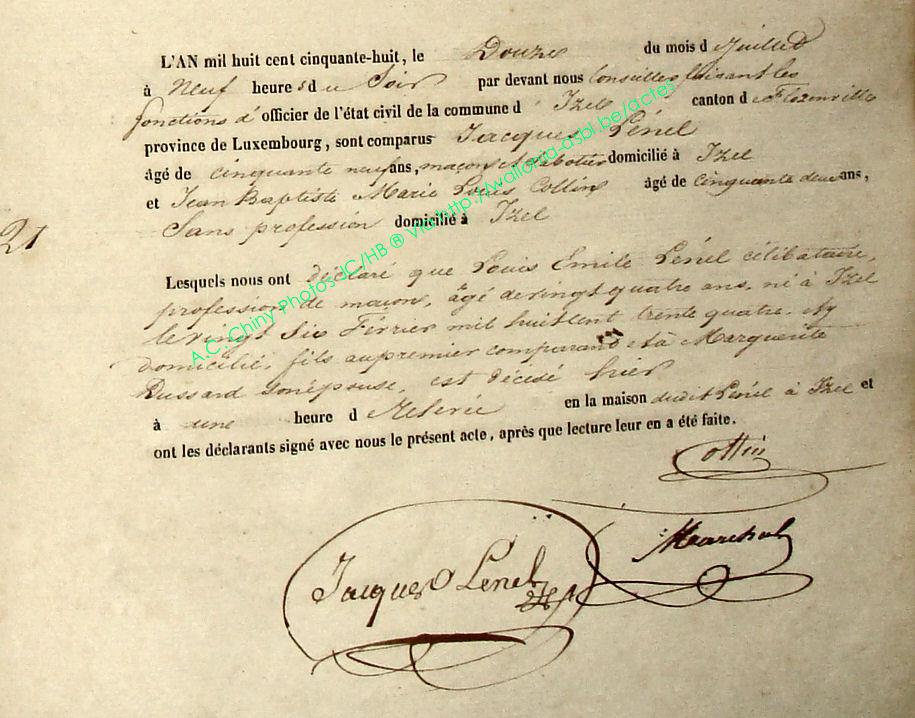 L'AN mil huit cent cinquante-huit, le Douze du mois d e Juillet
à Neuf heure s d u Soir par devant nous Conseiller faisant les
fonctions d' officier de l'état civil de la commune d' Izel canton d e Florenville
province de Luxembourg, sont comparus Jacques Lénel
âgé de cinquante neuf ans, maçon et sabotier domicilié à Izel
et Jean Baptiste Marie Louis Collin âgé de cinquante deux ans,
Sans profession domicilié à Izel
21
Lesquels nous ont déclaré que Louis Emile Lénel célibataire,
profession de maçon, âgé de vingt quatre ans, né à Izel
le vingt Six Février mil huit Cent trente quatre. Ay
domicilié, fils au premier comparant et à Marguerite
Dussard son épouse, est décédé hier
à une heure d e Relevée en la maison dudit Lénel à Izel et
ont les déclarants signé avec nous le présent acte, après que lecture leur en a été faite.
Collin
Marechal
Jacques Lenel
A.C. Chiny Photos JC/HB ® via http://wallonia-asbl.be/actes